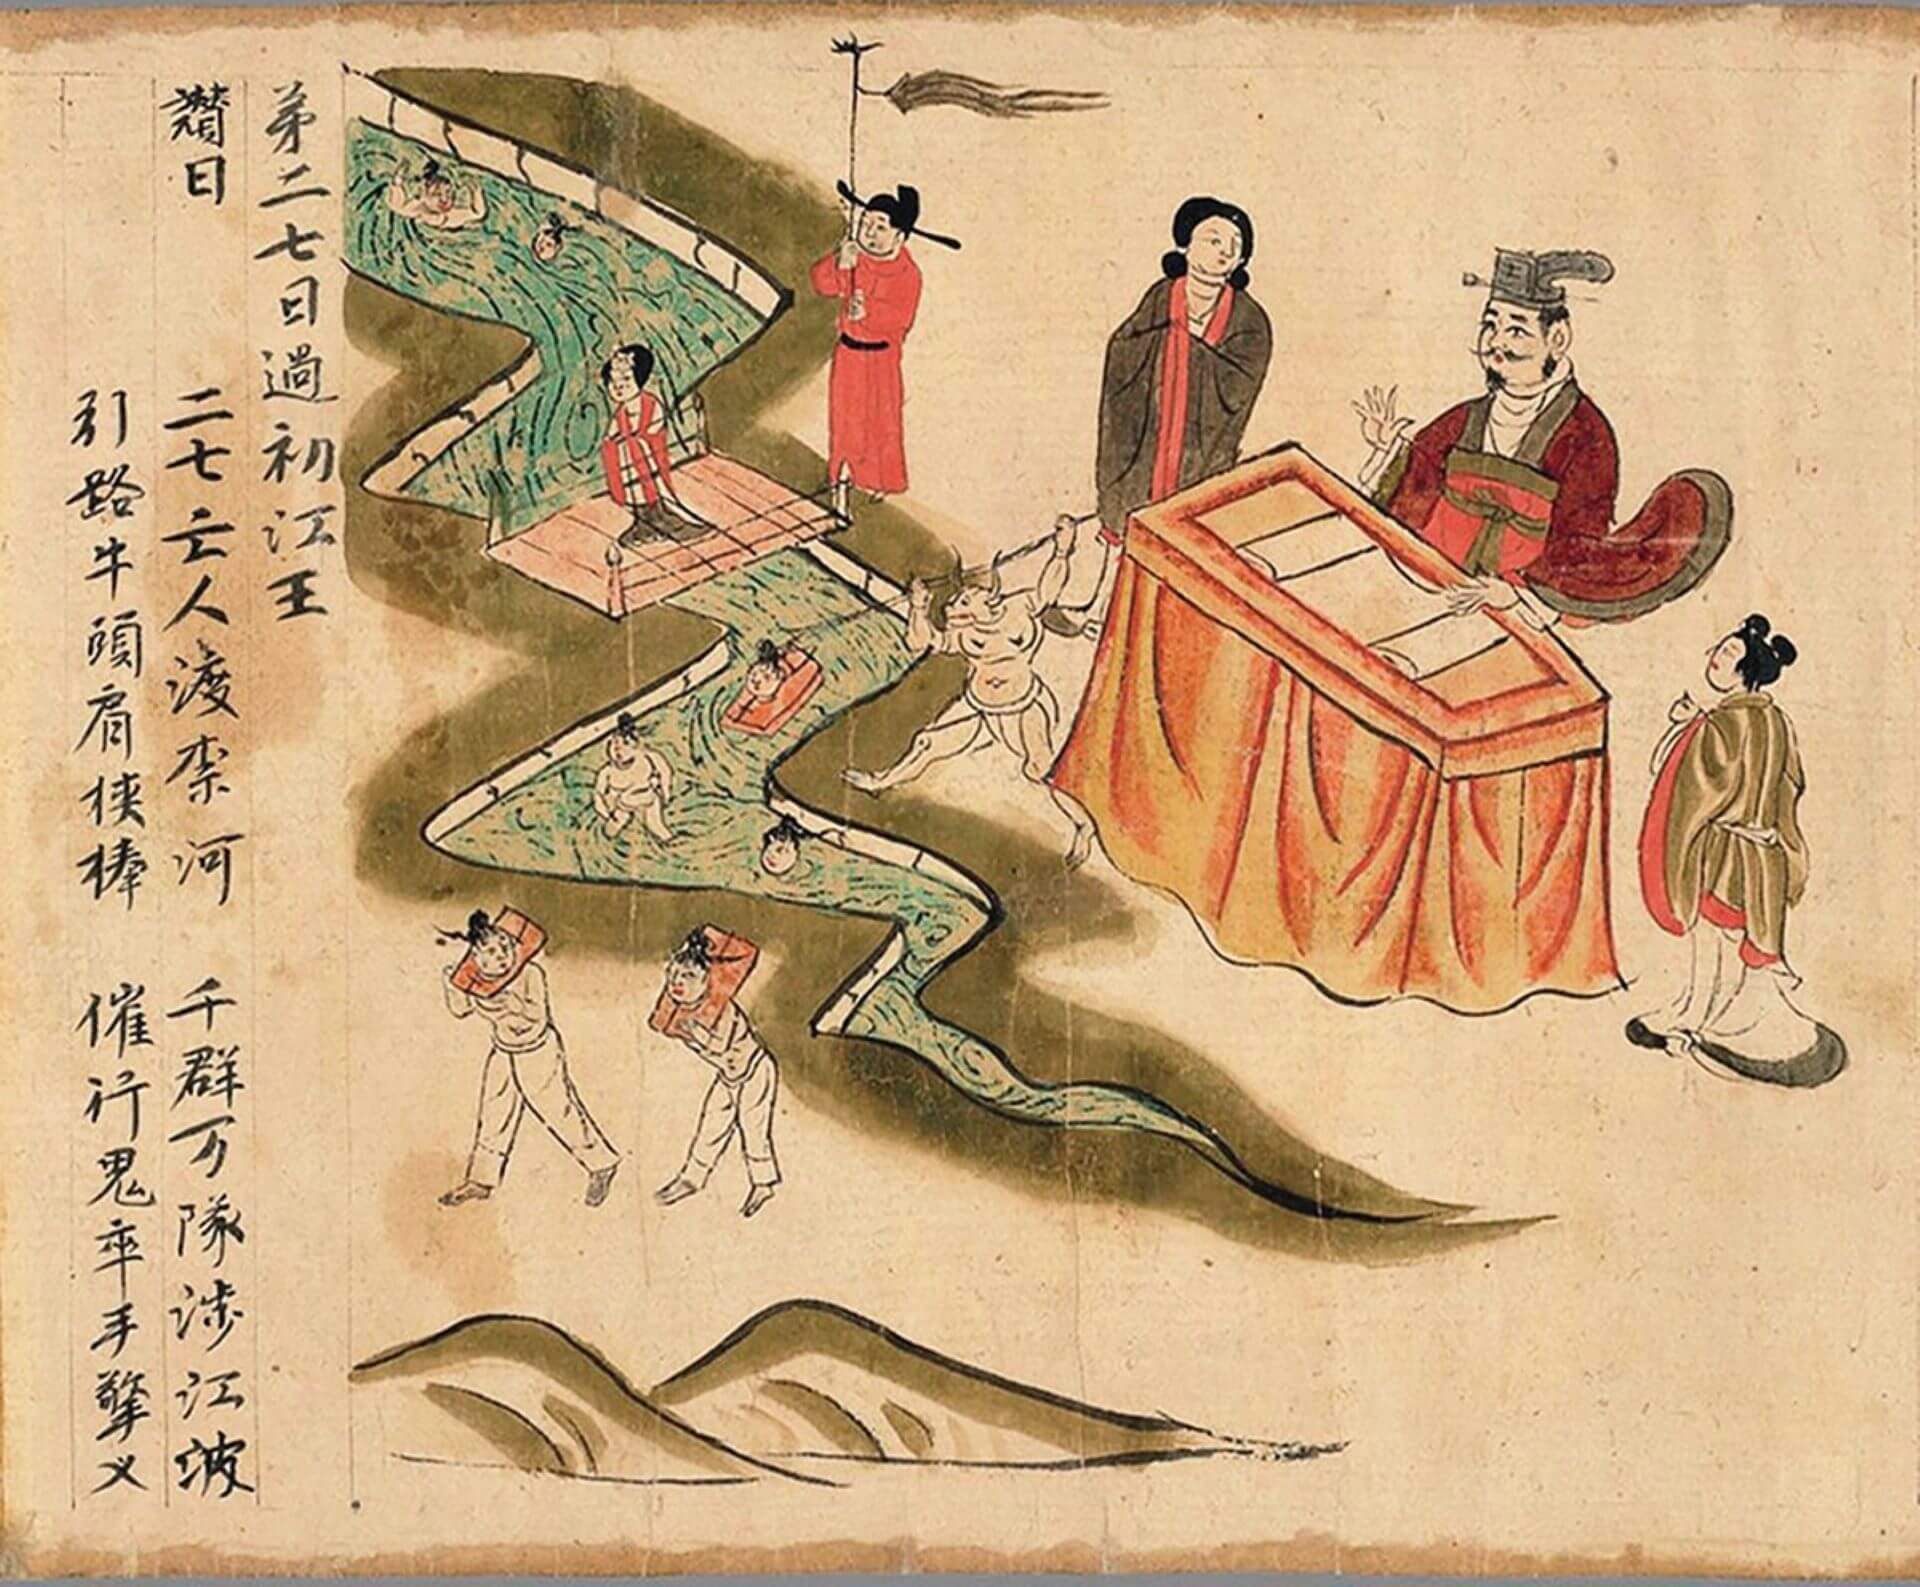 弟二七日過初江王
讚曰　二七亡人渡柰河　千群万隊涉江波
引路牛頭肩挾棒　催行鬼卒手擎叉
王